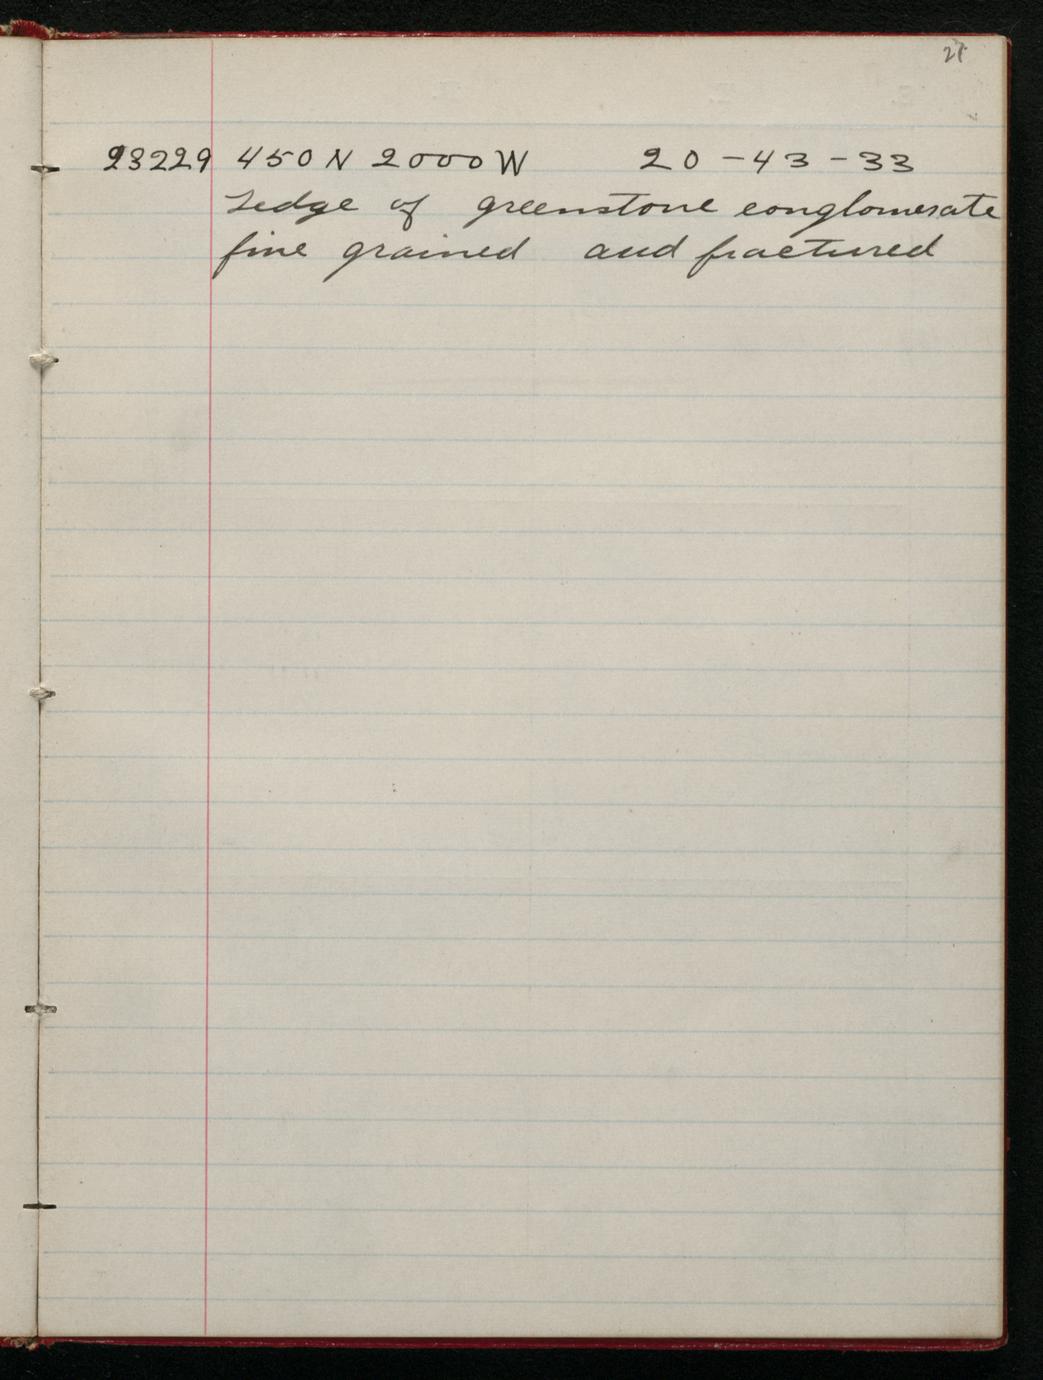 23229 450 N 2000 W 20-43-33
Ledge of greenstone conglomerate
fine grained and fractured